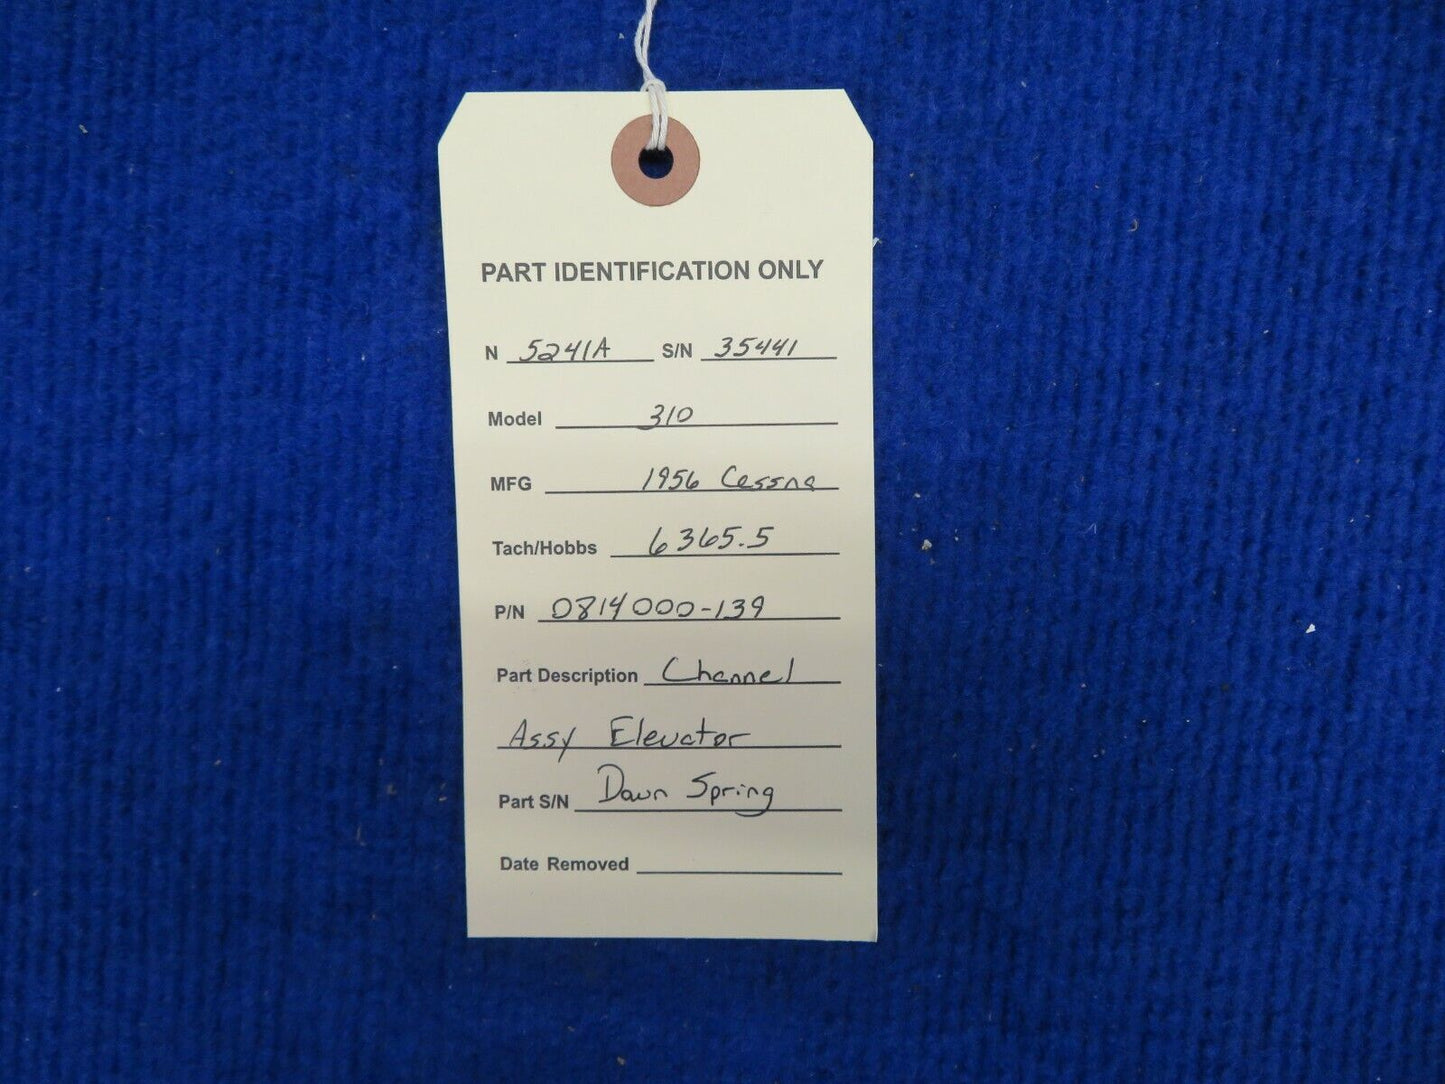 PART IDENTIFICATION ONLY
N 5241A S/N 35441
Model 310
MFG 1956 Cessna
Tach/Hobbs 6365.5
P/N 0814000-139
Part Description Channel
Assy Elevator
Part S/N Down Spring
Date Removed